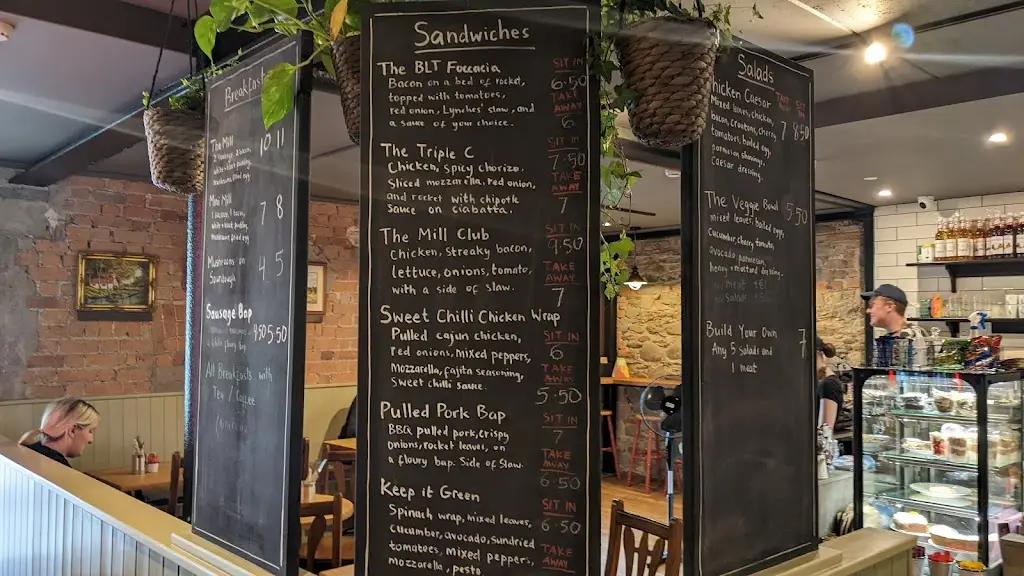 Breakfast
The Mill 10 11
white + black pudding,
Mini Mill 7 8
1 sausage, 1 bacon,
white + black pudding,
Mushrooms on 4 5
Sourdough
Sausage Bap 4.50 5.50
All Breakfasts with
Tea / Coffee
Sandwiches
The BLT Foccacia SIT IN
Bacon on a bed of rocket, 6.50
topped with tomatoes, TAKE
red onion, Lynches' slaw, and AWAY
a sauce of your choice. 6
The Triple C SIT IN
Chicken, spicy chorizo. 7.50
Sliced mozzarella, red onion, TAKE
and rocket with chipotle AWAY
Sauce on ciabatta. 7
The Mill Club SIT IN
Chicken, streaky bacon, 9.50
lettuce, onions, tomato, TAKE
with a side of slaw. AWAY
7
Sweet Chilli Chicken Wrap
Pulled cajun chicken, SIT IN
red onions, mixed peppers, 6
Mozzarella, fajita seasoning, TAKE
Sweet chilli sauce. AWAY
5.50
Pulled Pork Bap SIT IN
BBQ, pulled pork, crispy 7
onions, rocket leaves, on TAKE
a floury bap. Side of Slaw. AWAY
6.50
Keep it Green SIT IN
Spinach wrap, mixed leaves, 6.50
cucumber, avocado, sundried TAKE
tomatoes, mixed peppers, AWAY
mozzarella, pesto
Salads
Chicken Caesar
Mixed leaves, chicken, 7 8.50
bacon, croutons, cherry
tomatoes, boiled egg,
parmesan shavings,
Caesar dressing.
The Veggie Bowl 5.50
mixed leaves, boiled eggs,
Cucumber, cherry tomato,
avocado, parmesan,
honey + mustard dressing.
Build Your Own 7
Any 5 salads and
1 meat